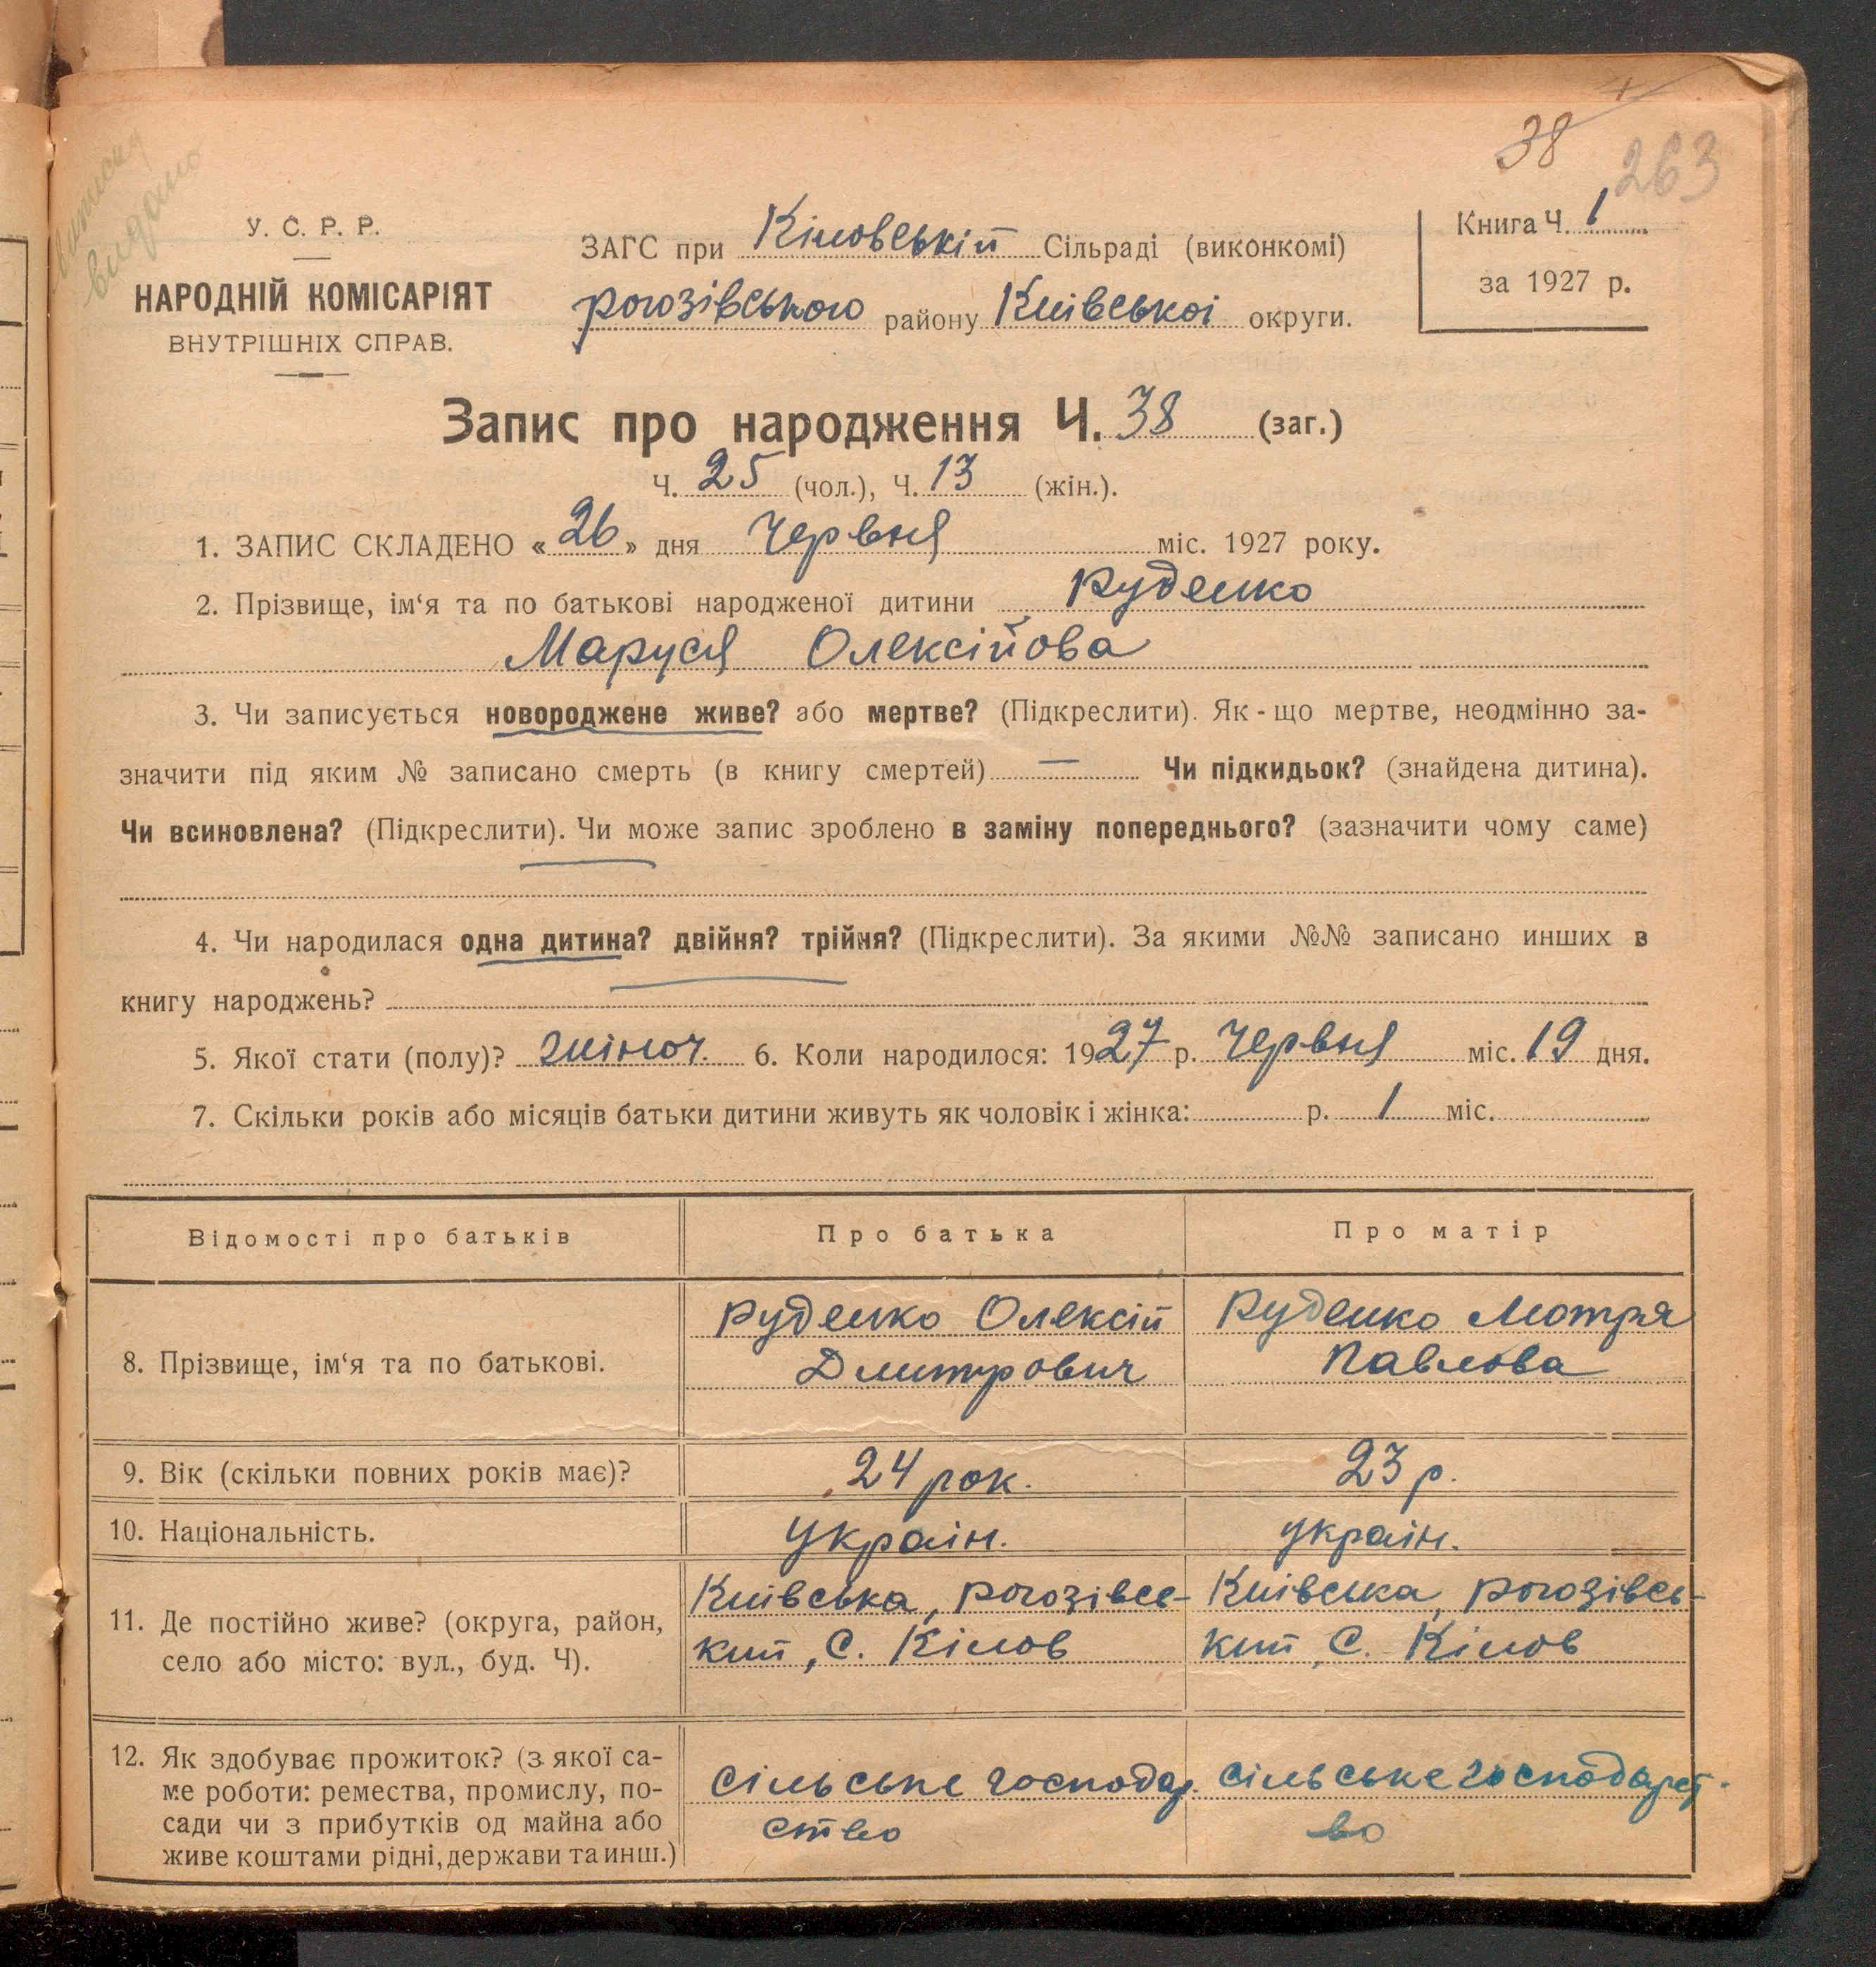 38
263
виписку
видано
У. С. Р. Р.
НАРОДНІЙ КОМІСАРІЯТ
ВНУТРІШНІХ СПРАВ.
ЗАГС при Кіловській Сільраді (виконкомі)
рогозівського району Київської округи.
Книга Ч. 1
за 1927 р.
Запис про народження Ч. 38 (заг.)
Ч. 25 (чол.), Ч. 13 (жін.).
1. ЗАПИС СКЛАДЕНО « 26 » дня Червня міс. 1927 року.
2. Прізвище, ім‘я та по батькові народженої дитини Руденко
Маруся Олексійова
3. Чи записується новороджене живе? або мертве? (Підкреслити). Як-що мертве, неодмінно за-
значити під яким № записано смерть (в книгу смертей) — Чи підкидьок? (знайдена дитина).
Чи всиновлена? (Підкреслити). Чи може запис зроблено в заміну попереднього? (зазначити чому саме)
4. Чи народилася одна дитина? двійня? трійня? (Підкреслити). За якими №№ записано инших в
книгу народжень?
5. Якої стати (полу)? жіноч. 6. Коли народилося: 1927 р. Червня міс. 19 дня.
7. Скільки років або місяців батьки дитини живуть як чоловік і жінка: р. 1 міс.
Відомості про батьків Про батька Про матір
8. Прізвище, ім‘я та по батькові.
Руденко Олексій
Дмитрович
Руденко Мотря
Павлова
9. Вік (скільки повних років має)? 24 рок. 23 р.
10. Національність. Україн. україн.
11. Де постійно живе? (округа, район,
село або місто: вул., буд. Ч).
Київська, рогозівсь-
кий, С. Кілов
Київська, рогозівсь-
кий, С. Кілов
12. Як здобуває прожиток? (з якої са-
ме роботи: ремества, промислу, по-
сади чи з прибутків од майна або
живе коштами рідні, держави та инш.)
Сільське господар.
ство
Сільське господарст-
во